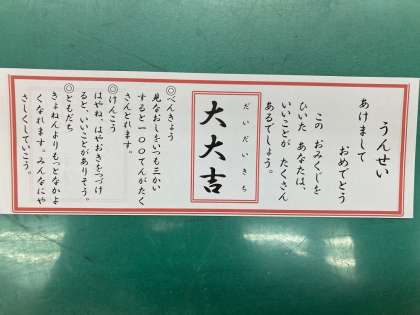 うんせい
あけまして
おめでとう
この おみくじを
ひいた あなたは、
いいことが たくさん
あるでしょう。
だいだいきち
大大吉
◎べんきょう
見なおしをいつも三かい
すると一〇〇てんがたく
さんとれます。
◎けんこう
はやね、はやおきをつづけ
ると、いいことがありそう。
◎ともだち
きょねんよりもっとなかよ
くなれます。みんなにや
さしくしていこう。